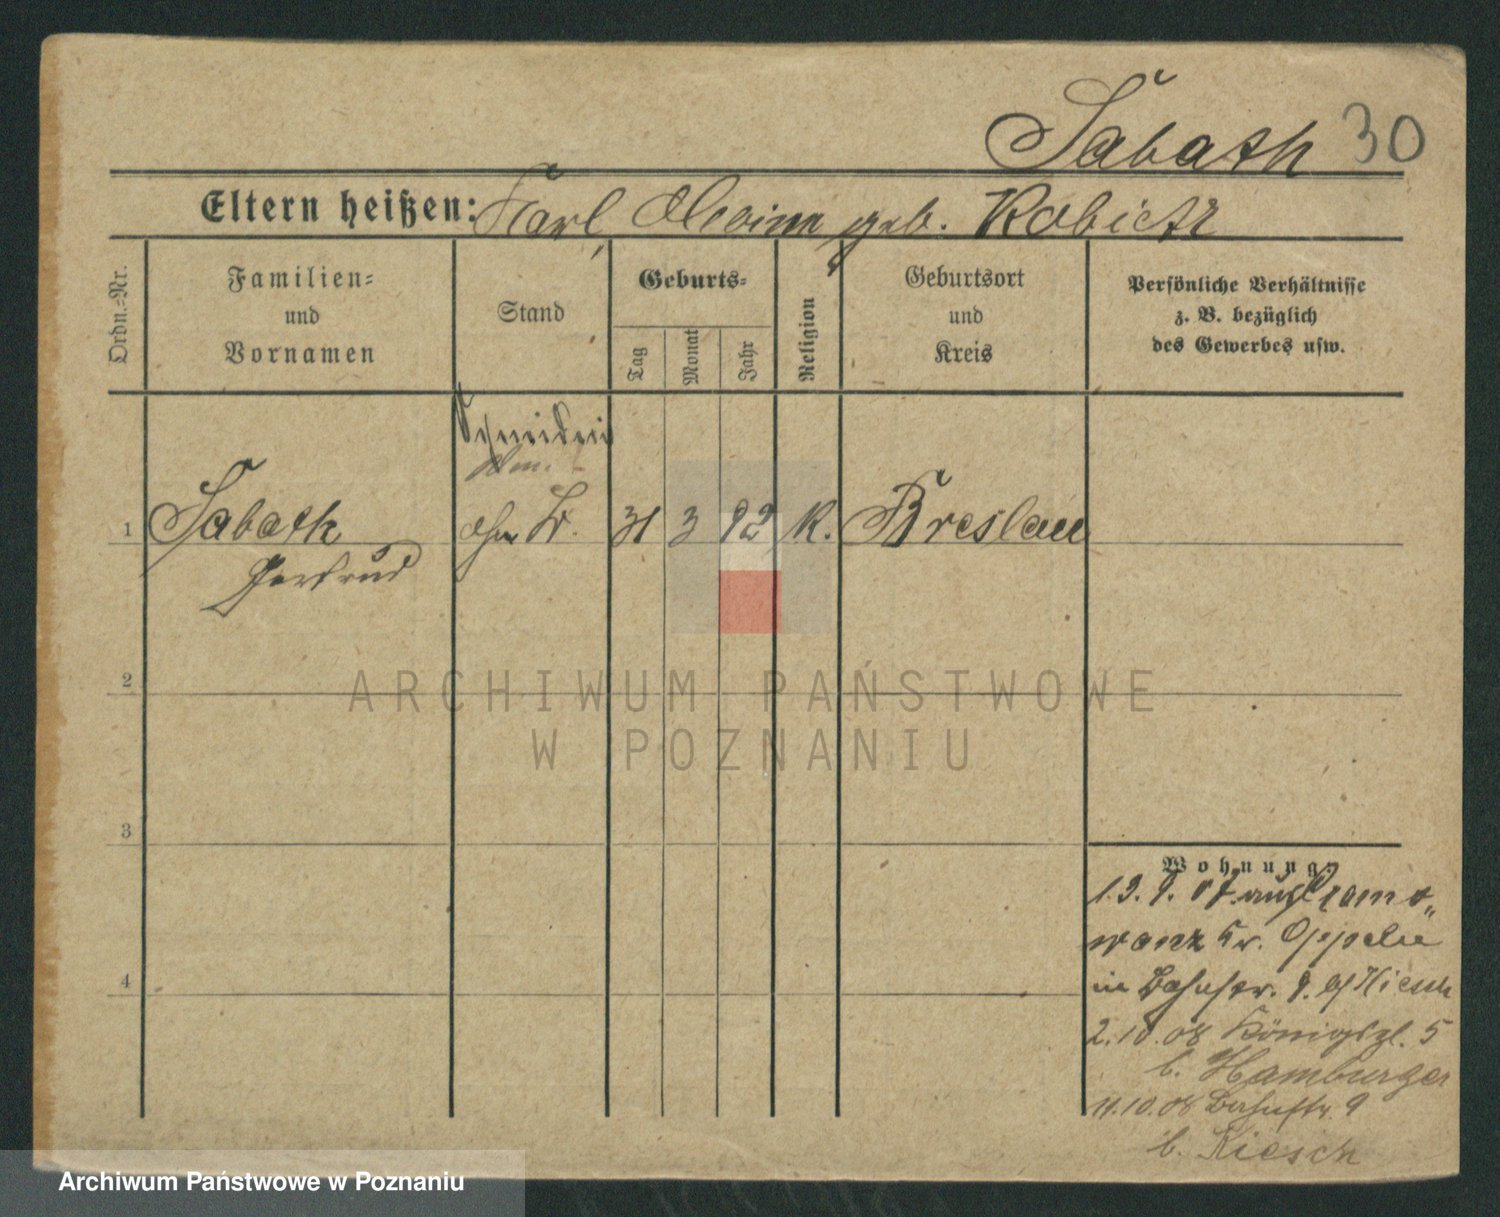 Sabath 30
Eltern heißen: Karl geb. Kabietz
Ordn.-Nr.
Familien-
und
Vornamen
Stand
Geburts-
Tag
Monat
Jahr
Religion
Geburtsort
und
Kreis
Persönliche Verhältnisse
z. B. bezüglich
des Gewerbes usw.
1 Sabath 31 3 92 K. Breslau
Gertrud
2
3
4
Wohnung:
Kr. Oppeln
in Bahnstr. 9.
2.10.08 Königspl. 5
b. Hamburger
11.10.08 Bahnstr. 9
b. Kiesch
ARCHIWUM PAŃSTWOWE
W POZNANIU
Archiwum Państwowe w Poznaniu